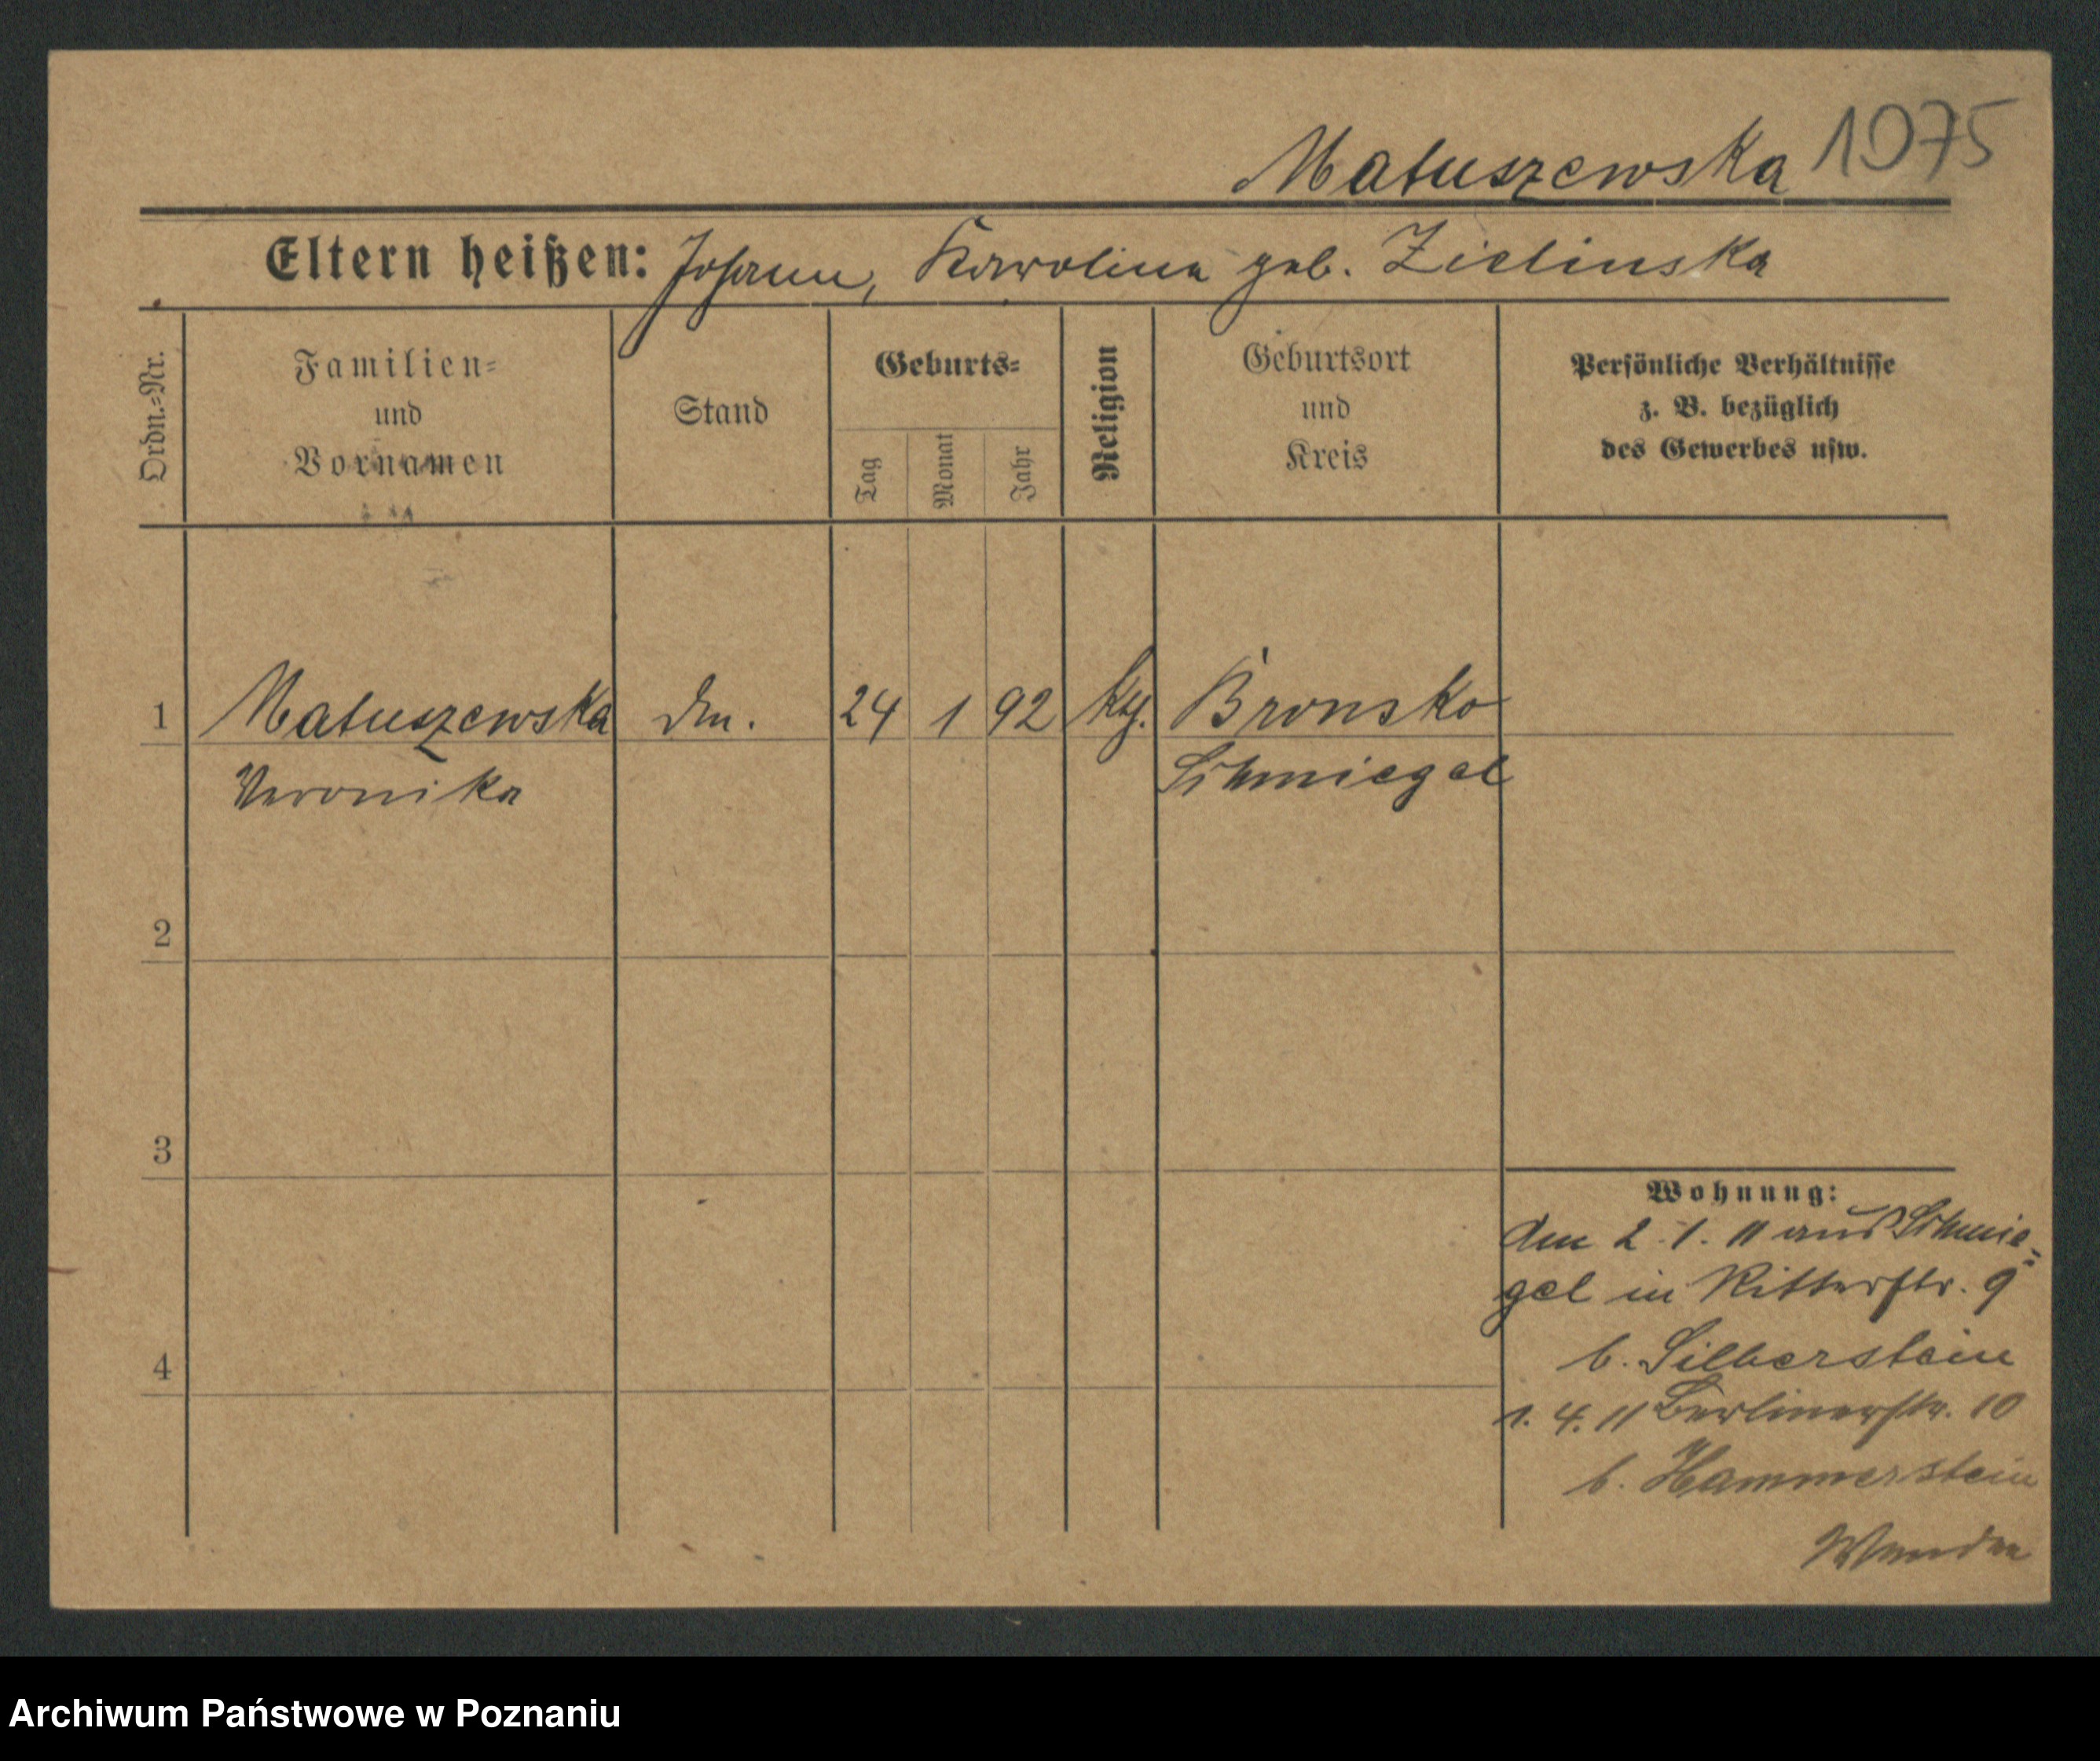 Matuszewska 1075
Eltern heißen: Johann, Karolina geb. Zielinska
Ordn.=Nr.
Familien=
und
Vornamen
Stand
Geburts=
Tag
Monat
Jahr
Religion
Geburtsort
und
Kreis
Persönliche Verhältnisse
z. B. bezüglich
des Gewerbes usw.
1 Matuszewska 24 1 92 Bronsko
Veronika Schmiegel
2
3
4
Wohnung:
Am 2.1.11 aus Schmie=
gel in Ritterstr. 9
b. Silberstein
1.4.11 Berlinerstr. 10
b. Hammerstein
Archiwum Państwowe w Poznaniu